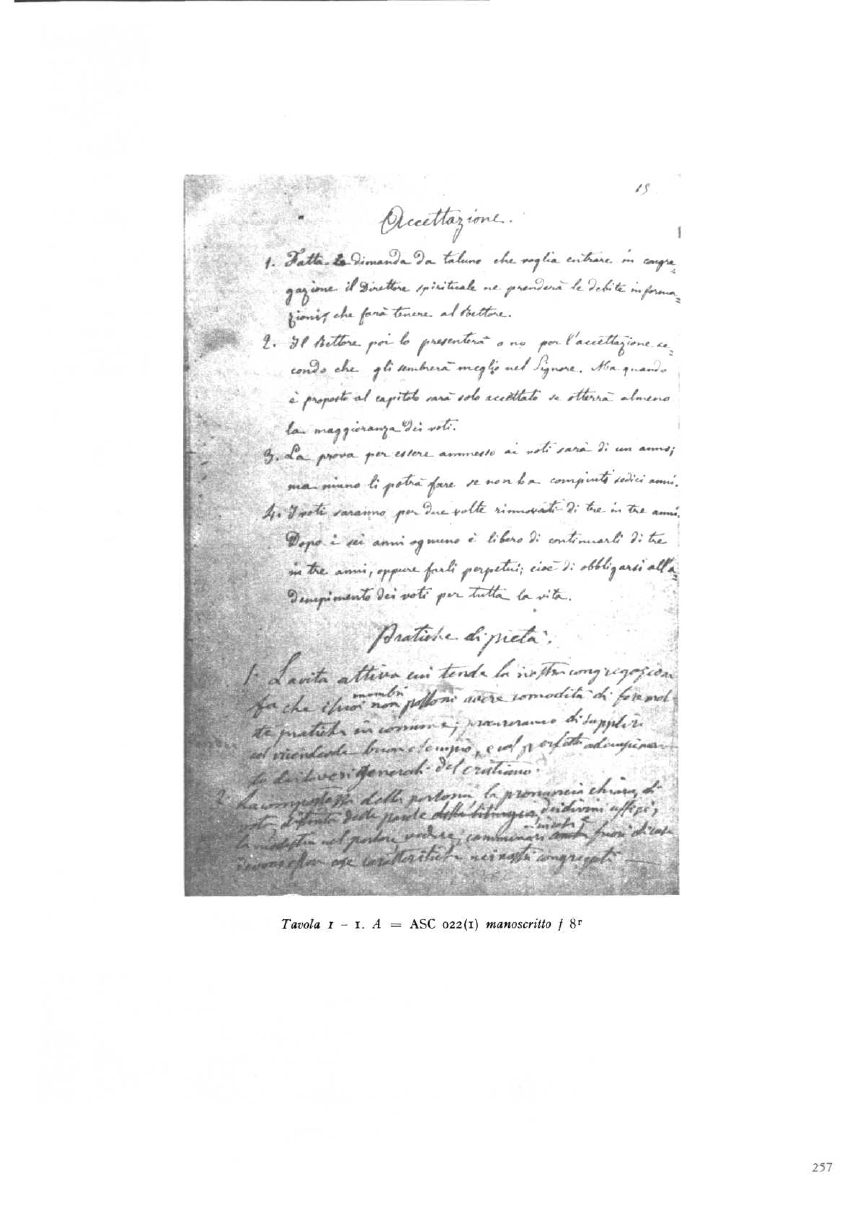 15
Accettazione.
1. Fatta la dimanda da taluno che voglia entrare in congre-
gazione il Direttore spirituale ne prenderà le debite informa-
zioni, che farà tenere al Rettore.
2. Il Rettore poi lo presenterà o no per l'accettazione se-
condo che gli sembrerà meglio nel Signore. Ma quando
è proposto al capitolo sarà solo accettato se otterrà almeno
la maggioranza dei voti.
3. La prova per essere ammesso ai voti sarà di un anno;
ma niuno li potrà fare se non ha compiuto sedici anni.
4. I voti saranno per due volte rinnovati di tre in tre anni.
Dopo i sei anni ognuno è libero di continuarli di tre
in tre anni, oppure farli perpetui; cioè di obbligarsi all'a-
dempimento dei voti per tutta la vita.
Pratiche di pietà.
1. La vita attiva cui tende la nostra congregazione
fa che i suoi membri non possono avere comodità di far molte
pratiche in comune; procureranno di supplire
col vicendevole buon esempio, e col perfetto adempimento
dei doveri generali del cristiano.
2. La compostezza della persona la pronuncia chiara, di
distinta delle parole della liturgia dei divini uffizi,
la modestia nel parlare vedere, camminare in casa, fuori di casa
devono essere cose caratteristiche nei nostri congregati
Tavola 1 – 1. A = ASC 022(1) manoscritto f 8r
257